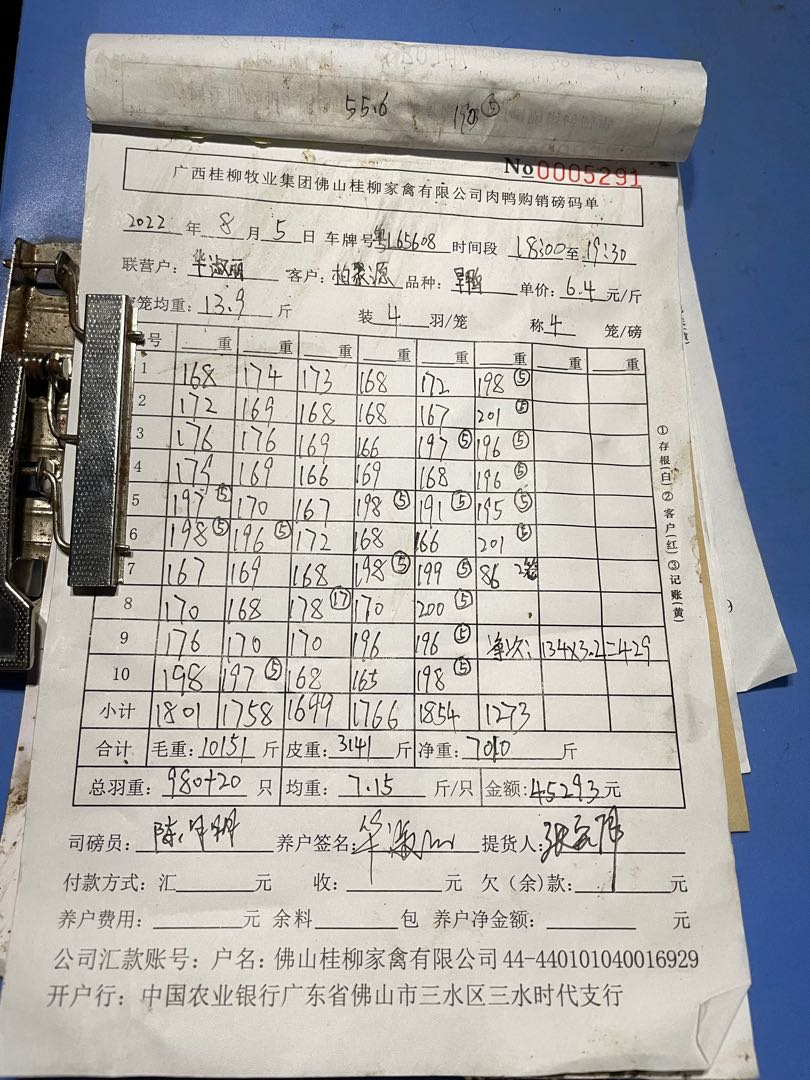 55.6 190⑤
No 0005291
广西桂柳牧业集团佛山桂柳家禽有限公司肉鸭购销磅码单
2022 年 8 月 5 日 车牌号 粤L65608 时间段 18:00至19:30
联营户: 华淑丽 客户: 柏聚源 品种: 单价: 6.4 元/斤
笼均重: 13.9 斤 装 4 羽/笼 称 4 笼/磅
号 重 重 重 重 重 重 重 重
1 168 174 173 168 172 198⑤
2 172 169 168 168 167 201⑤
3 176 176 169 166 197⑤ 196⑤
4 179 169 166 169 168 196⑤
5 197⑤ 170 167 198⑤ 191⑤ 195⑤
6 198⑤ 196⑤ 172 168 166 201⑤
7 167 169 168 198⑤ 199⑤ 86 2笼
8 170 168 178⑰ 170 200⑤
9 176 170 170 196 196⑤ 134×3.2=429
10 198 197⑤ 168 165 198⑤
小计 1801 1758 1699 1766 1854 1273
合计 毛重: 10151 斤 皮重: 3141 斤 净重: 7010 斤
总羽重: 980+20 只 均重: 7.15 斤/只 金额: 45293元
①存根(白)②客户(红)③记账(黄)
司磅员: 陈 养户签名: 华淑 提货人: 张
付款方式: 汇 元 收: 元 欠(余)款: 元
养户费用: 元 余料 包 养户净金额: 元
公司汇款账号: 户名: 佛山桂柳家禽有限公司 44-440101040016929
开户行: 中国农业银行广东省佛山市三水区三水时代支行